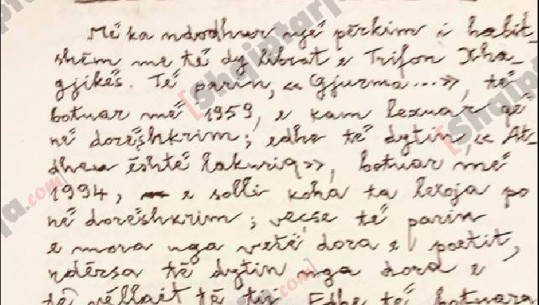 Më ka ndodhur një përkim i habit-
shëm me të dy librat e Trifon Xha-
gjikës. Të parin, «Gjurma...», të
botuar më 1959, e kam lexuar që
në dorëshkrim; edhe të dytin, «At-
dheu është lakuriq», botuar më
1994, e solli koha ta lexoja po
në dorëshkrim; veçse të parin
e mora nga vetë dora e poetit,
ndërsa të dytin nga dora e
të vëllait të tij. Edhe të botuara